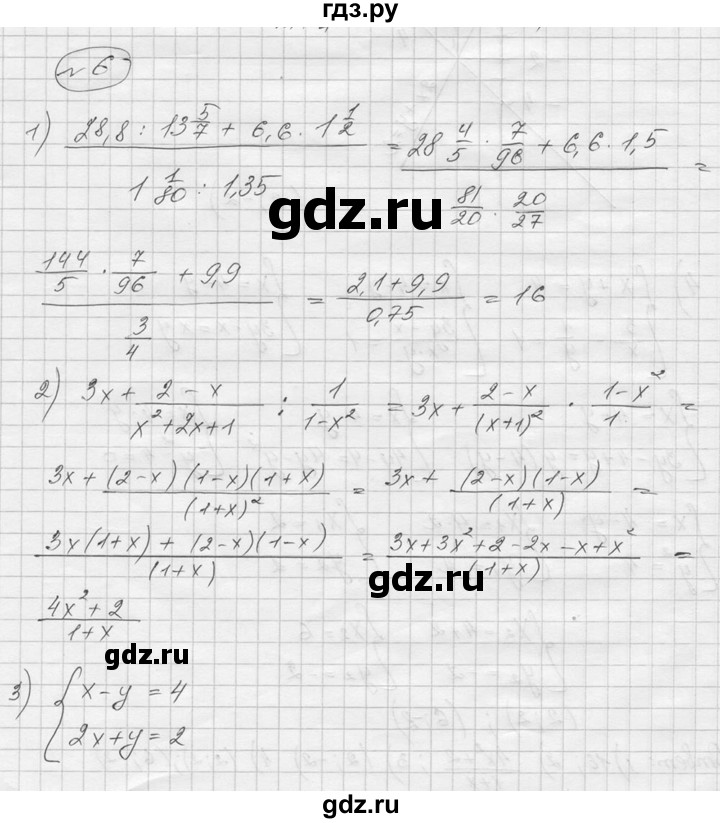 гдз.ру
№ 6
1) (28,8 : 13 5/7 + 6,6 · 1 1/2) / (1 1/80 : 1,35) = (28 4/5 · 7/96 + 6,6 · 1,5) / (81/20 · 20/27) =
gdz.ru
(144/5 · 7/96 + 9,9) / (3/4) = (2,1 + 9,9) / 0,75 = 16
2) 3x + (2 - x)/(x² + 2x + 1) : 1/(1-x²) = 3x + (2-x)/(x+1)² · (1-x²)/1 =
3x + (2-x)(1-x)(1+x)/(1+x)² = 3x + (2-x)(1-x)/(1+x) =
(3x(1+x) + (2-x)(1-x))/(1+x) = (3x+3x²+2-2x-x+x²)/(1+x) =
gdz.ru
(4x²+2)/(1+x)
gdz.ru
3) { x-y = 4
2x+y = 2
gdz.ru